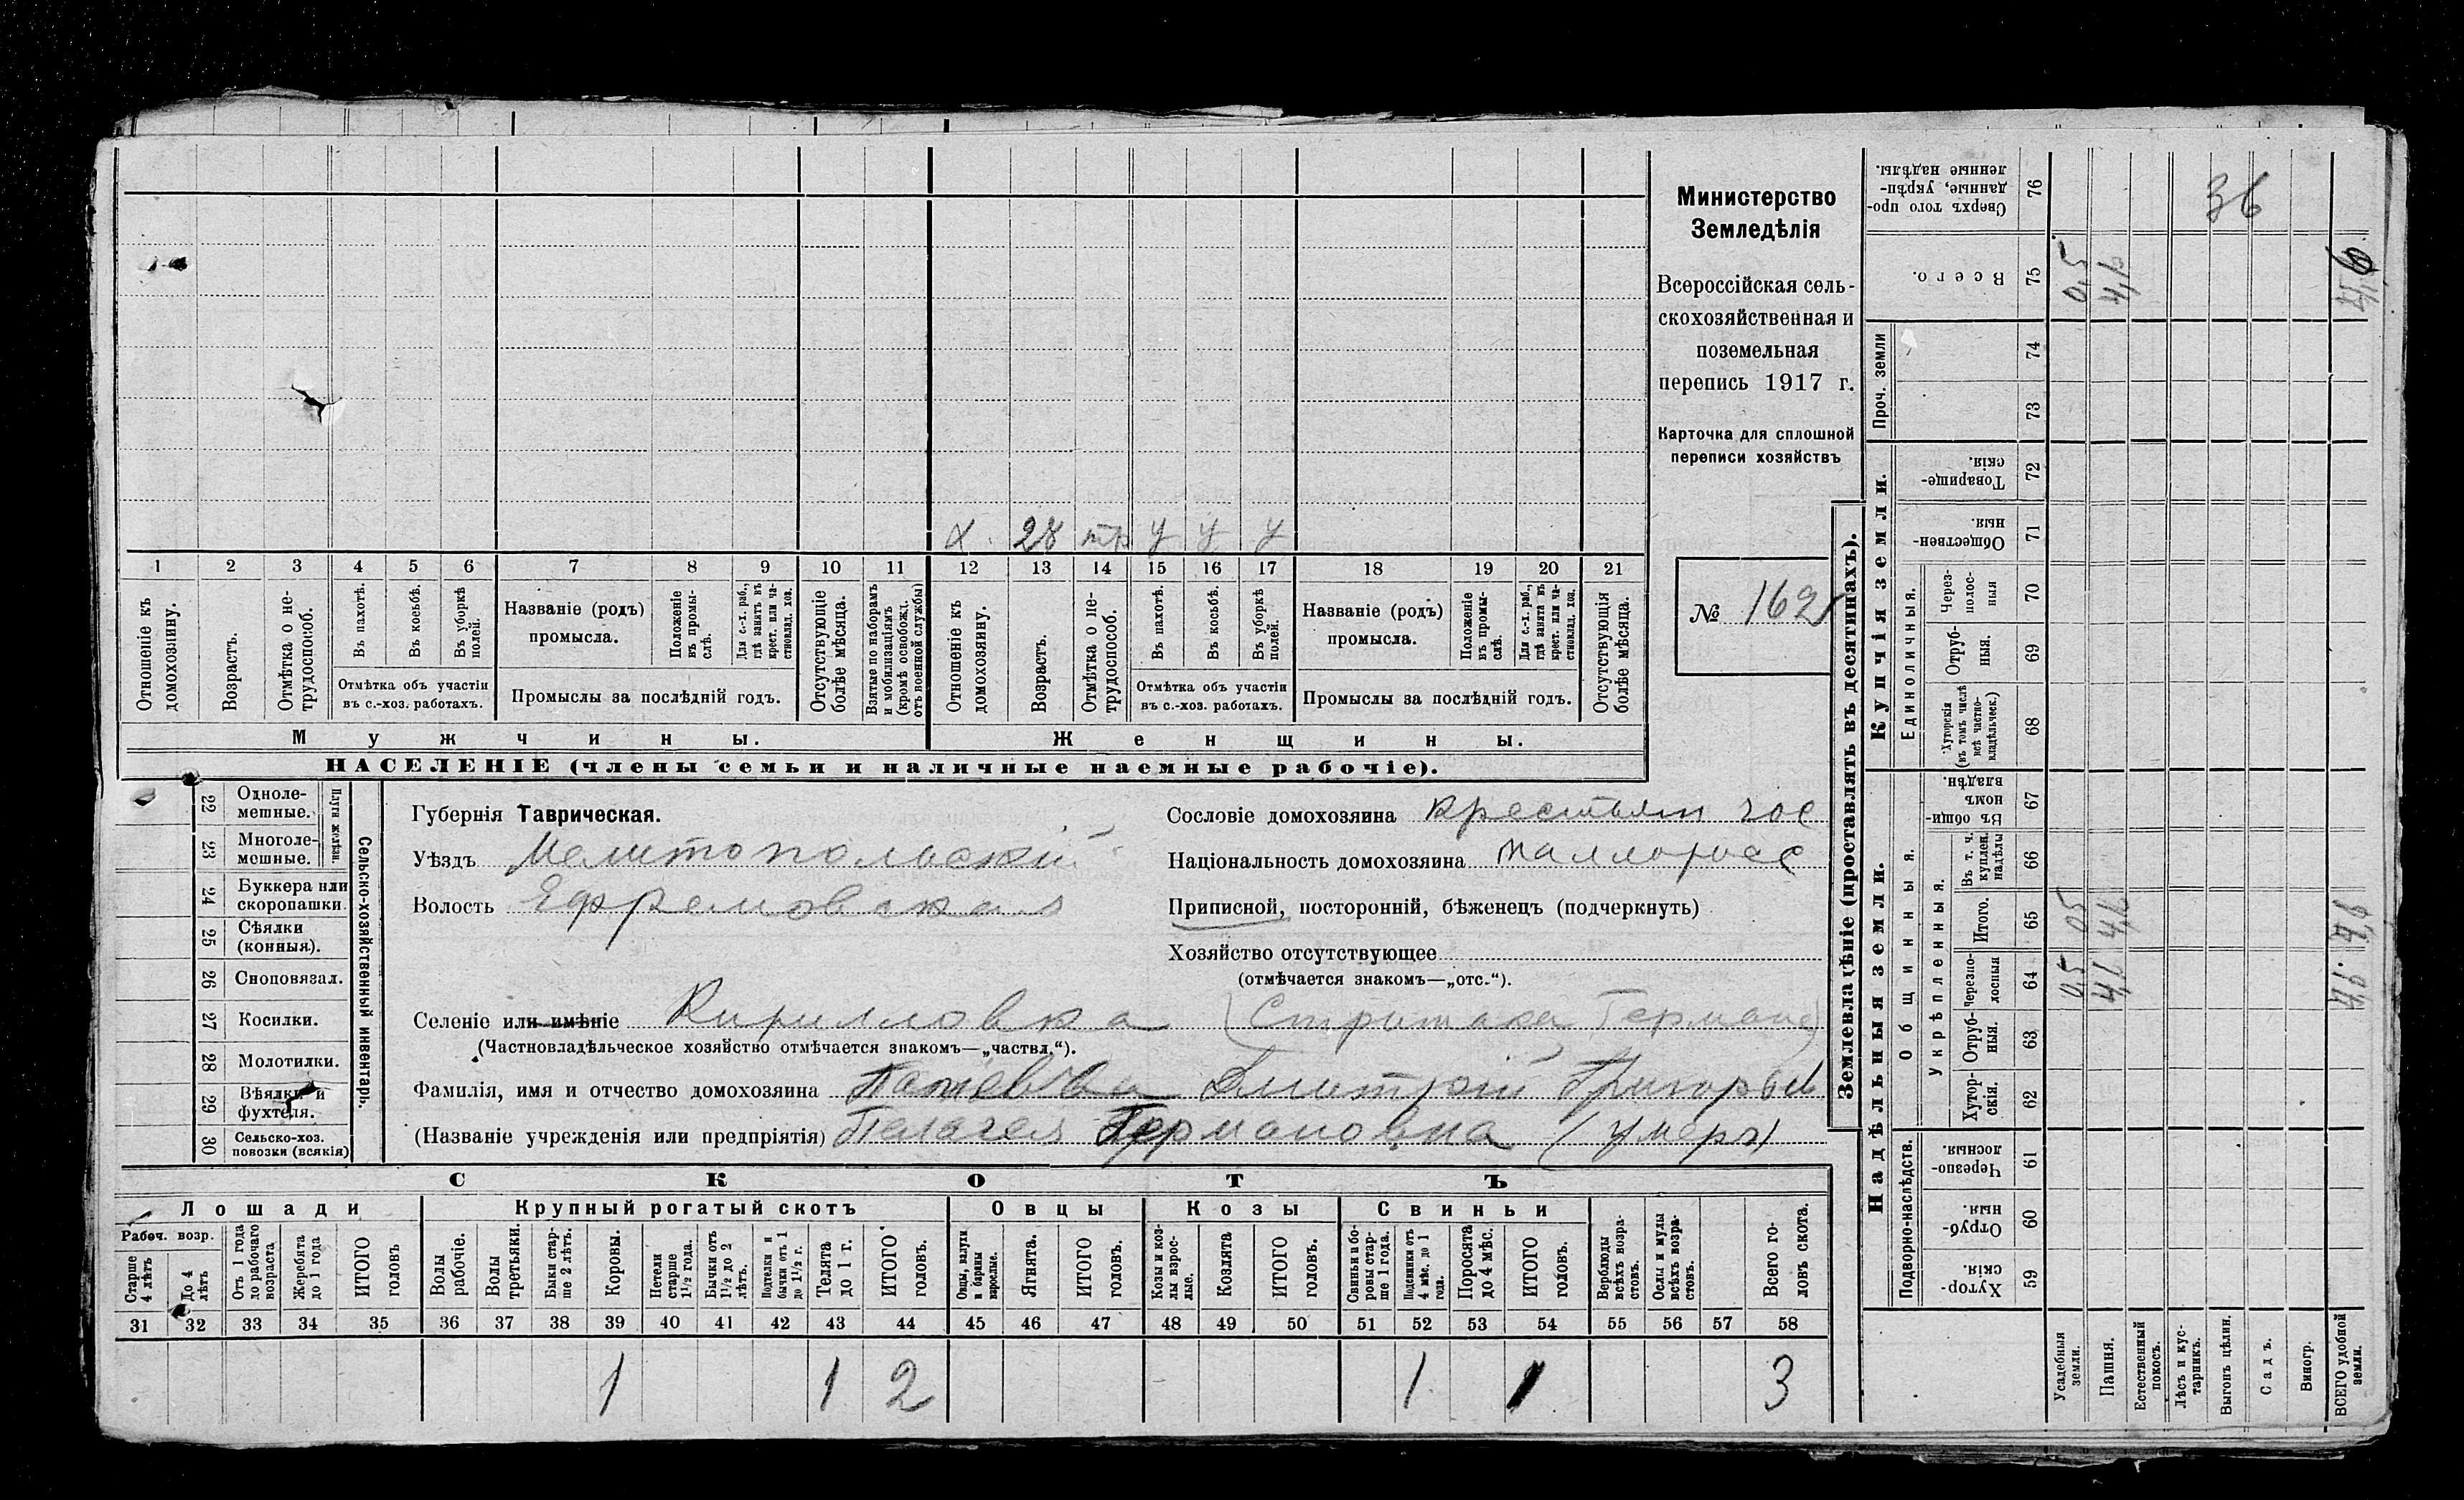 х. 28 тр у у у
1 2 3 4 5 6 7 8 9 10 11 12 13 14 15 16 17 18 19 20 21
Отношеніе къ домохозяину.
Возрастъ.
Отмѣтка о не-трудоспособ.
Въ пахотѣ.
Въ косьбѣ.
Въ уборкѣ полей.
Отмѣтка объ участіи
въ с.-хоз. работахъ.
Названіе (родъ)
промысла.
Положеніе въ промы-слѣ.
Для с.-х. раб., гдѣ занятъ въ крест. или ча-стновлад. хоз.
Промыслы за послѣдній годъ.
Отсутствующіе болѣе мѣсяца.
Взятые по наборамъ и мобилизаціямъ (кромѣ освобожд. отъ военной службы)
Отношеніе къ домохозяину.
Возрастъ.
Отмѣтка о не-трудоспособ.
Въ пахотѣ.
Въ косьбѣ.
Въ уборкѣ полей.
Отмѣтка объ участіи
въ с.-хоз. работахъ.
Названіе (родъ)
промысла.
Положеніе въ промы-слѣ.
Для с.-х. раб., гдѣ занята въ крест. или ча-стновлад. хоз.
Промыслы за послѣдній годъ.
Отсутствующія болѣе мѣсяца.
Мужчины.
Женщины.
НАСЕЛЕНІЕ (члены семьи и наличные наемные рабочіе).
Министерство
Земледѣлія
Всероссійская сель-
скохозяйственная и
поземельная
перепись 1917 г.
Карточка для сплошной
переписи хозяйствъ
№ 162
22 Одноле-мешные.
23 Многоле-мешные.
Плуги желѣзн.
24 Буккера или скоропашки.
25 Сѣялки (конныя).
26 Сноповязал.
27 Косилки.
28 Молотилки.
29 Вѣялки и фухтеля.
30 Сельско-хоз. повозки (всякія)
Сельско-хозяйственный инвентарь.
Губернія Таврическая.
Уѣздъ Мелитопольскій
Волость Ефремовская
Сословіе домохозяина крестьян гос
Національность домохозяина маллоросс
Приписной, посторонній, бѣженецъ (подчеркнуть)
Хозяйство отсутствующее
(отмѣчается знакомъ—„отс.“).
Селеніе или имѣніе Кирилловка
(Частновладѣльческое хозяйство отмѣчается знакомъ—„частвл.“).
Фамилія, имя и отчество домохозяина Дмитрій Григорьев
(Названіе учрежденія или предпріятія) Пелагея Германовна (умеръ)
СКОТЪ
Лошади
Крупный рогатый скотъ
Овцы
Козы
Свиньи
Рабоч. возр.
Старше 4 лѣтъ
До 4 лѣтъ
Отъ 1 года до рабочаго возраста
Жеребята до 1 года
ИТОГО головъ
Волы рабочіе.
Волы третьяки.
Быки стар-ше 2 лѣтъ.
Коровы.
Нетели старше 1½ года.
Бычки отъ 1½ до 2 лѣтъ.
Подтелки и бычки отъ 1 до 1½ г.
Телята до 1 г.
ИТОГО головъ.
Овцы, валухи и бараны взрослые.
Ягнята.
ИТОГО головъ.
Козы и коз-лы взрос-лые.
Козлята
ИТОГО головъ.
Свиньи и бо-ровы стар-ше 1 года.
Подсвинки отъ 4 мѣс. до 1 года.
Поросята до 4 мѣс.
ИТОГО головъ.
Верблюды всѣхъ возра-стовъ.
Ослы и мулы всѣхъ возра-стовъ.
Всего го-ловъ скота.
31 32 33 34 35 36 37 38 39 40 41 42 43 44 45 46 47 48 49 50 51 52 53 54 55 56 57 58
1 1 2 1 1 3
Землевладѣніе (проставлять въ десятинахъ).
Надѣльныя земли.
Купчія земли.
Проч. земли
Подворно-наслѣдств.
Общинныя.
Укрѣпленныя.
Единоличныя.
Хутор-скія. 59
Отруб-ныя. 60
Черезпо-лосныя 61
Хутор-скія. 62
Отруб-ныя. 63
Черезпо-лосныя 64 0,5 4,1
Итого. 65 0,5 4,1
Въ т. ч. куплен. надѣлы 66
Въ общи-номъ владѣн. 67
Хуторскія (въ томъ числѣ всѣ частно-владѣльческ.) 68
Отруб-ныя. 69
Через-полос-ныя 70
Обществен-ныя. 71
Товарище-скія. 72
73
74
Всего. 75 0,5 4,1
Сверхъ того про-данные, укрѣп-ленные надѣлы. 76 36
Усадебныя земли.
Пашня.
Естественный покосъ.
Лѣсъ и кус-тарникъ.
Выгонъ цѣлин.
Садъ.
Виногр.
ВСЕГО удобной земли.